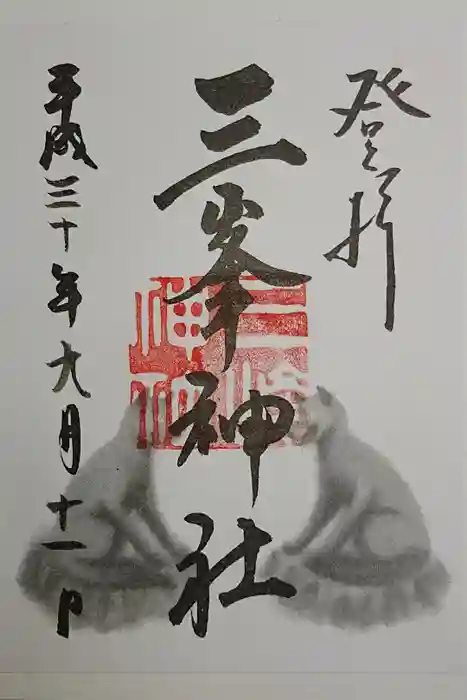 登拝
三峯神社
平成三十年九月十一日
三峰
神社